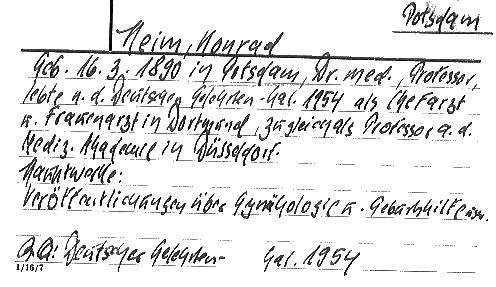 Potsdam
Heim, Konrad
Geb. 16. 3. 1890 in Potsdam, Dr. med., Professor,
lebte n. d. Deutschen Gelehrten-Kal. 1954 als Chefarzt
u. Frauenarzt in Dortmund, zugleich als Professor a. d.
Mediz. Akademie in Düsseldorf.
Hauptwerke:
Veröffentlichungen über Gynäkologie u. Geburtshilfe usw.
Qu: Deutscher Gelehrten- Kal. 1954
1/16/7